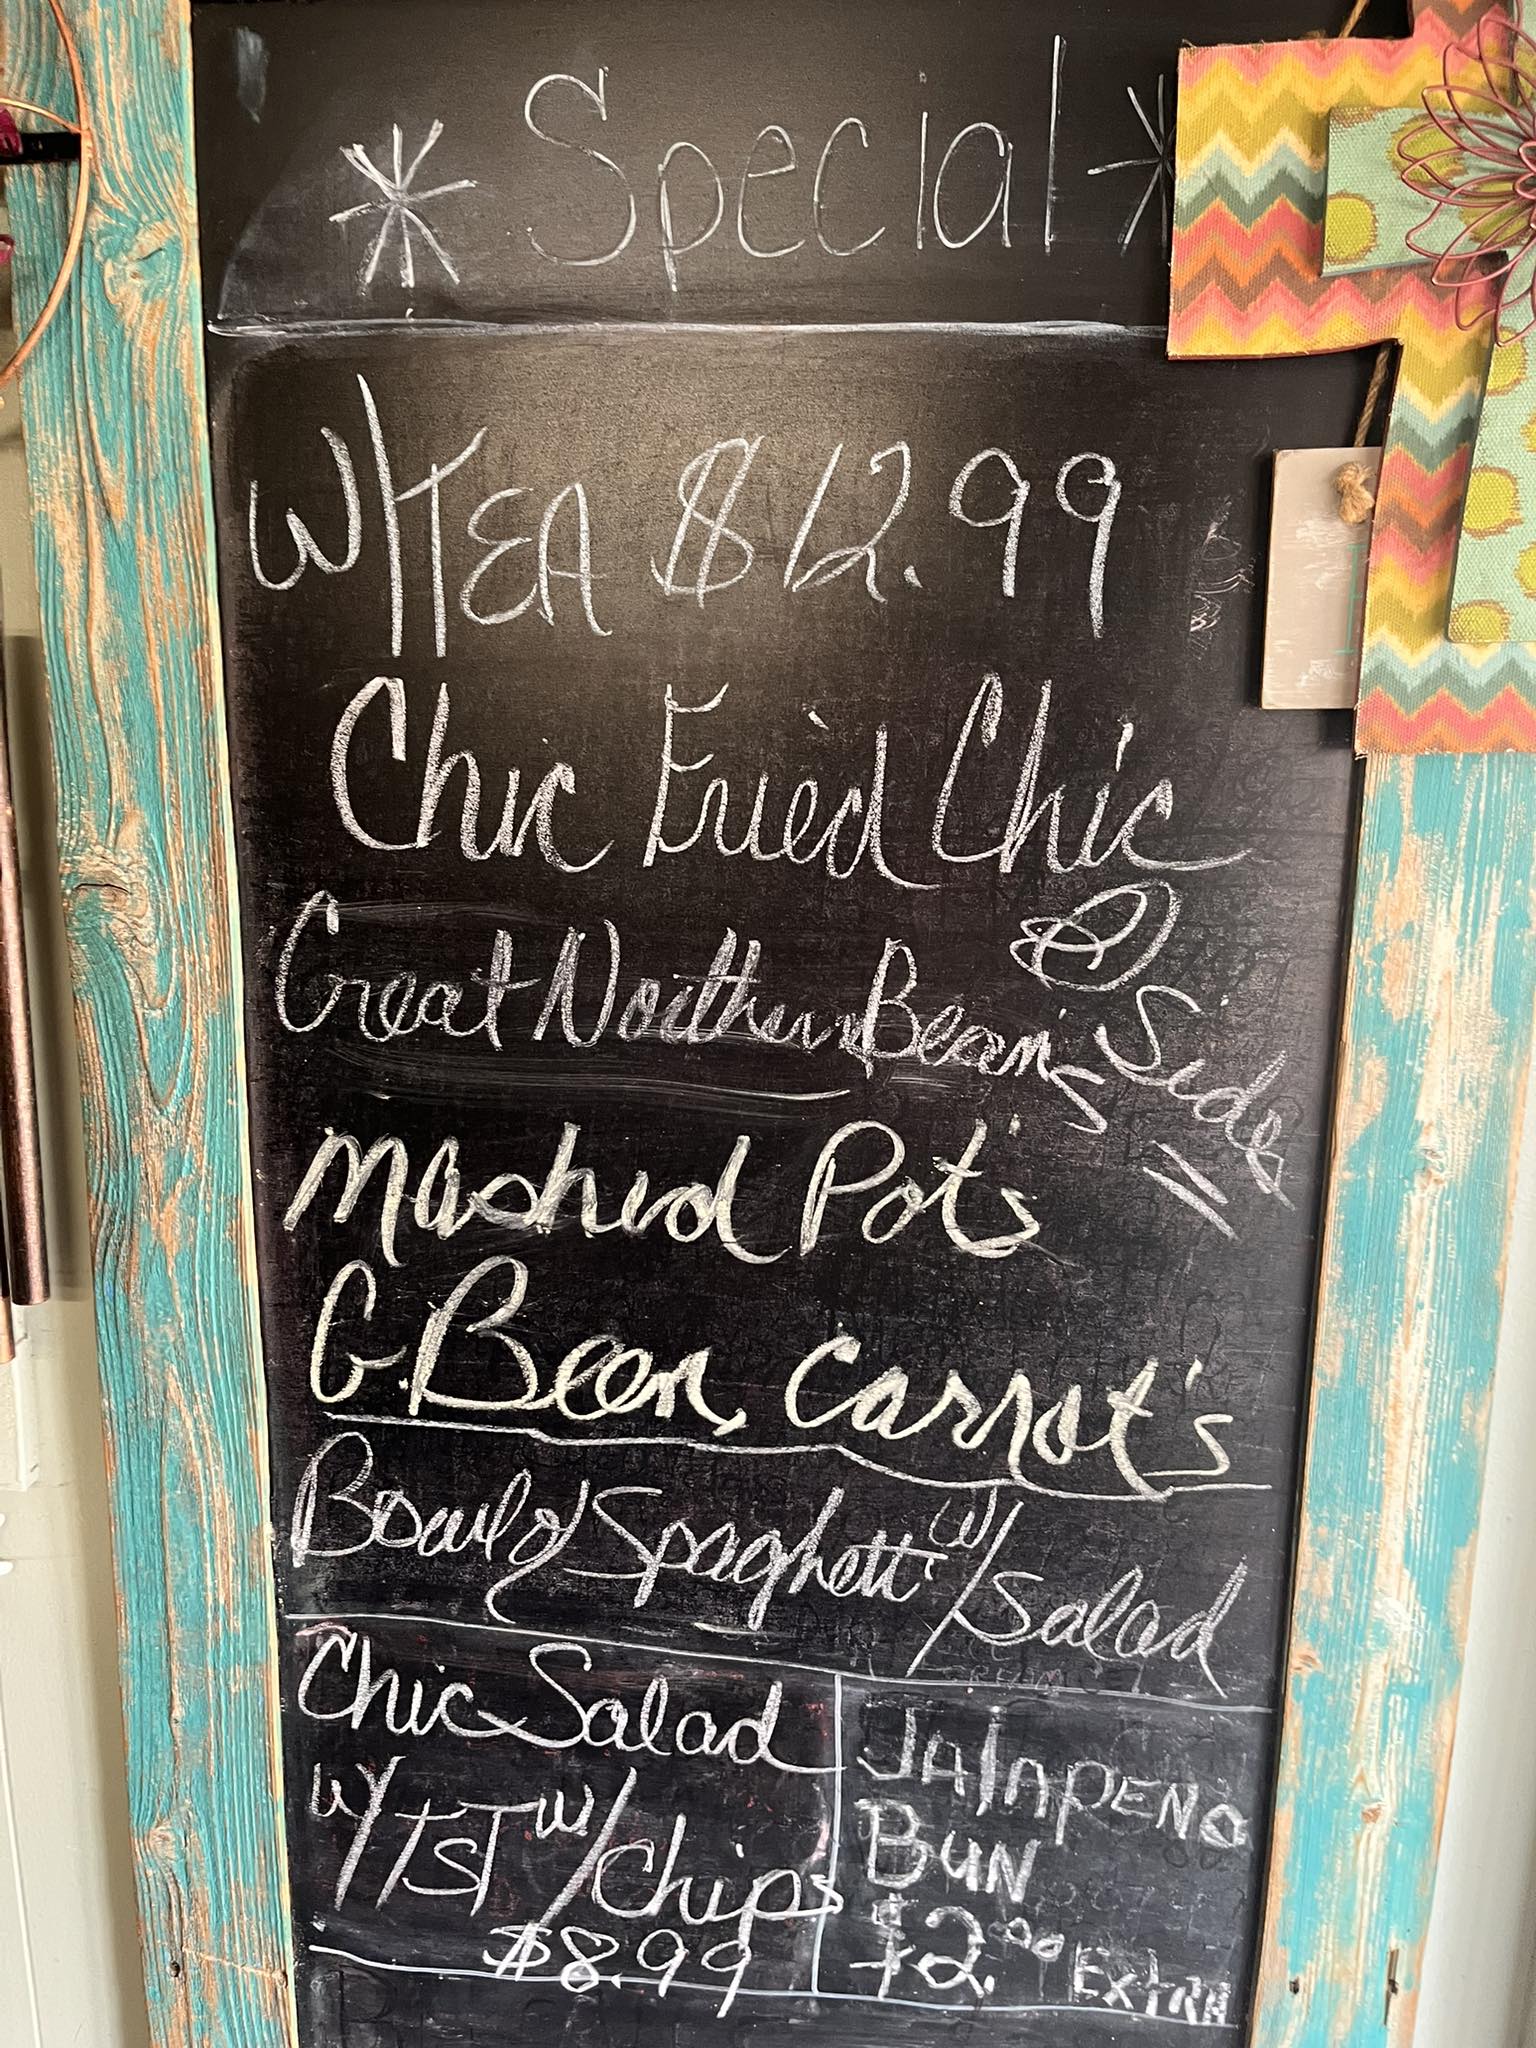 * Special *
W/TEA $12.99
Chic Fried Chic
Great Northern Bean's
② Sides
Mashed Pot's
G. Been, Carrot's
Bowl of Spaghetti w/ Salad
Chic Salad
w/TST w/Chips
$8.99
JAlAPENO
BUN
$2.00 ExtRA